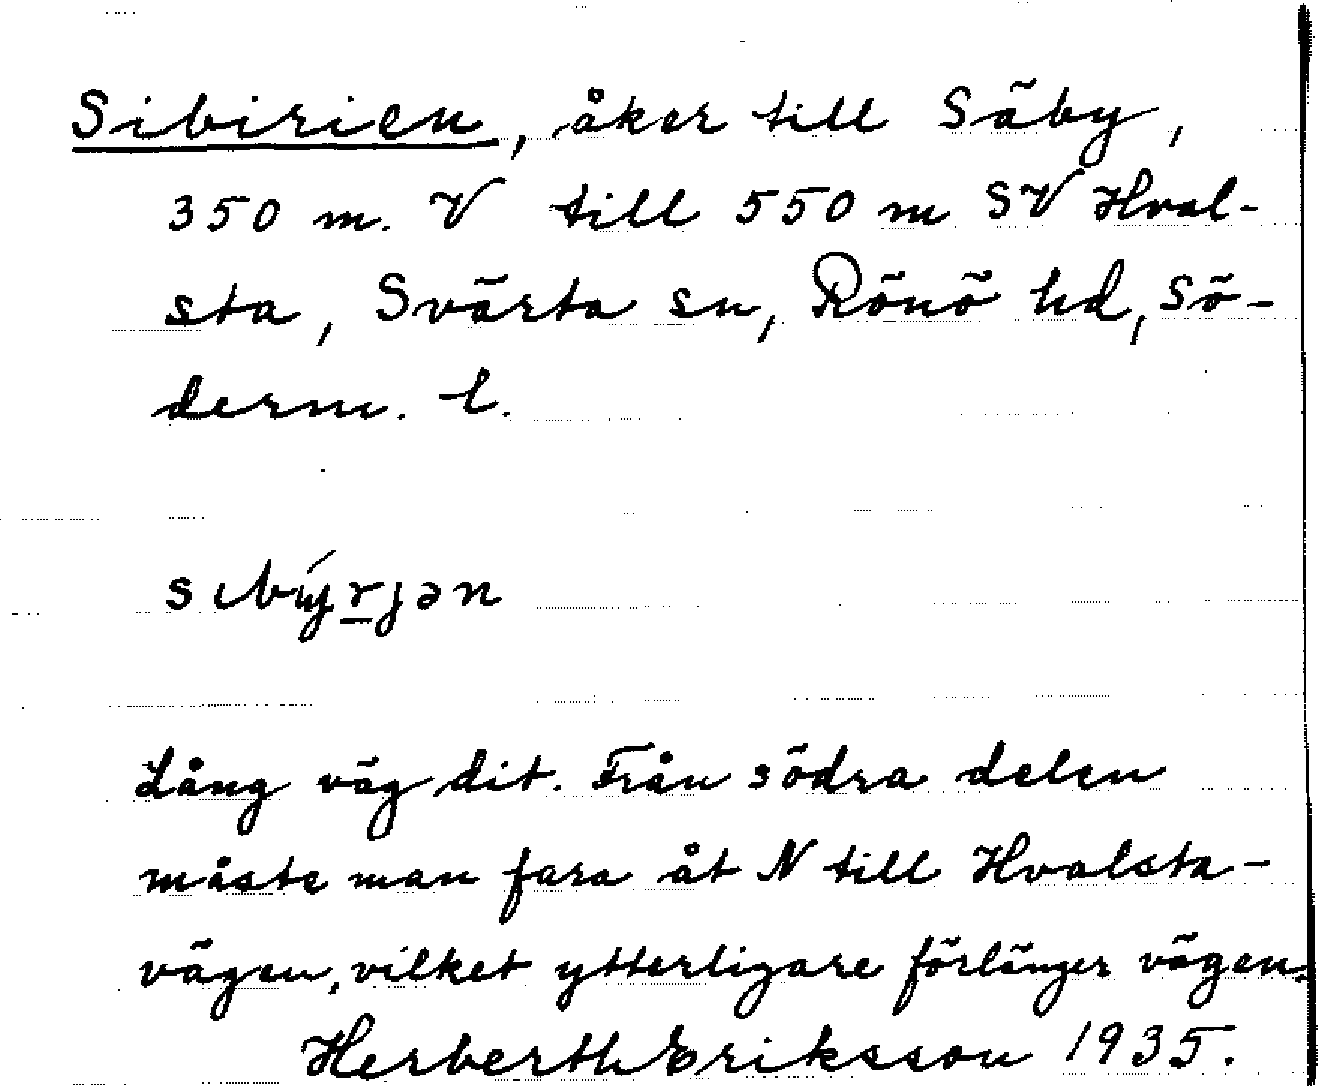 Sibirien, åker till Säby,
350 m. V till 550 m SV Hval-
sta, Svärta sn, Rönö hd, Sö-
derm. l.
sıbýrjən
Lång väg dit. Från södra delen
måste man fara åt N till Hvalsta-
vägen, vilket ytterligare förlänger vägen.
Herberth Eriksson 1935.